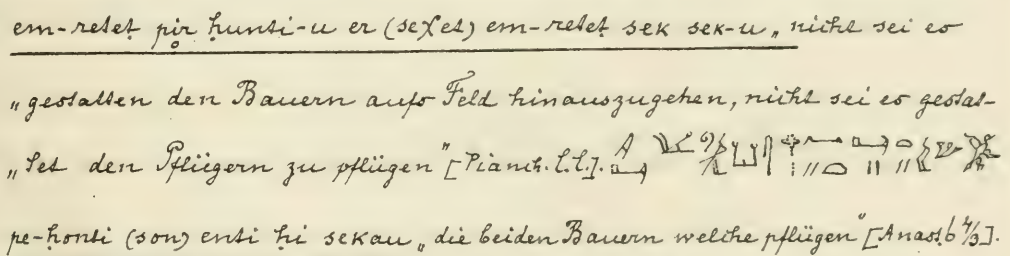 em-reteṭ pir ḥunti-u er (seχet) em-reteṭ sek sek-u „nicht sei es
„gestatten den Bauern aufs Feld hinauszugehen, nicht sei es gestat-
„tet den Pflügern zu pflügen" [Pianch. l.l.].
pe-ḥonti (son) enti ḥi sekau „die beiden Bauern welche pflügen" [Anast. 6 4/3].